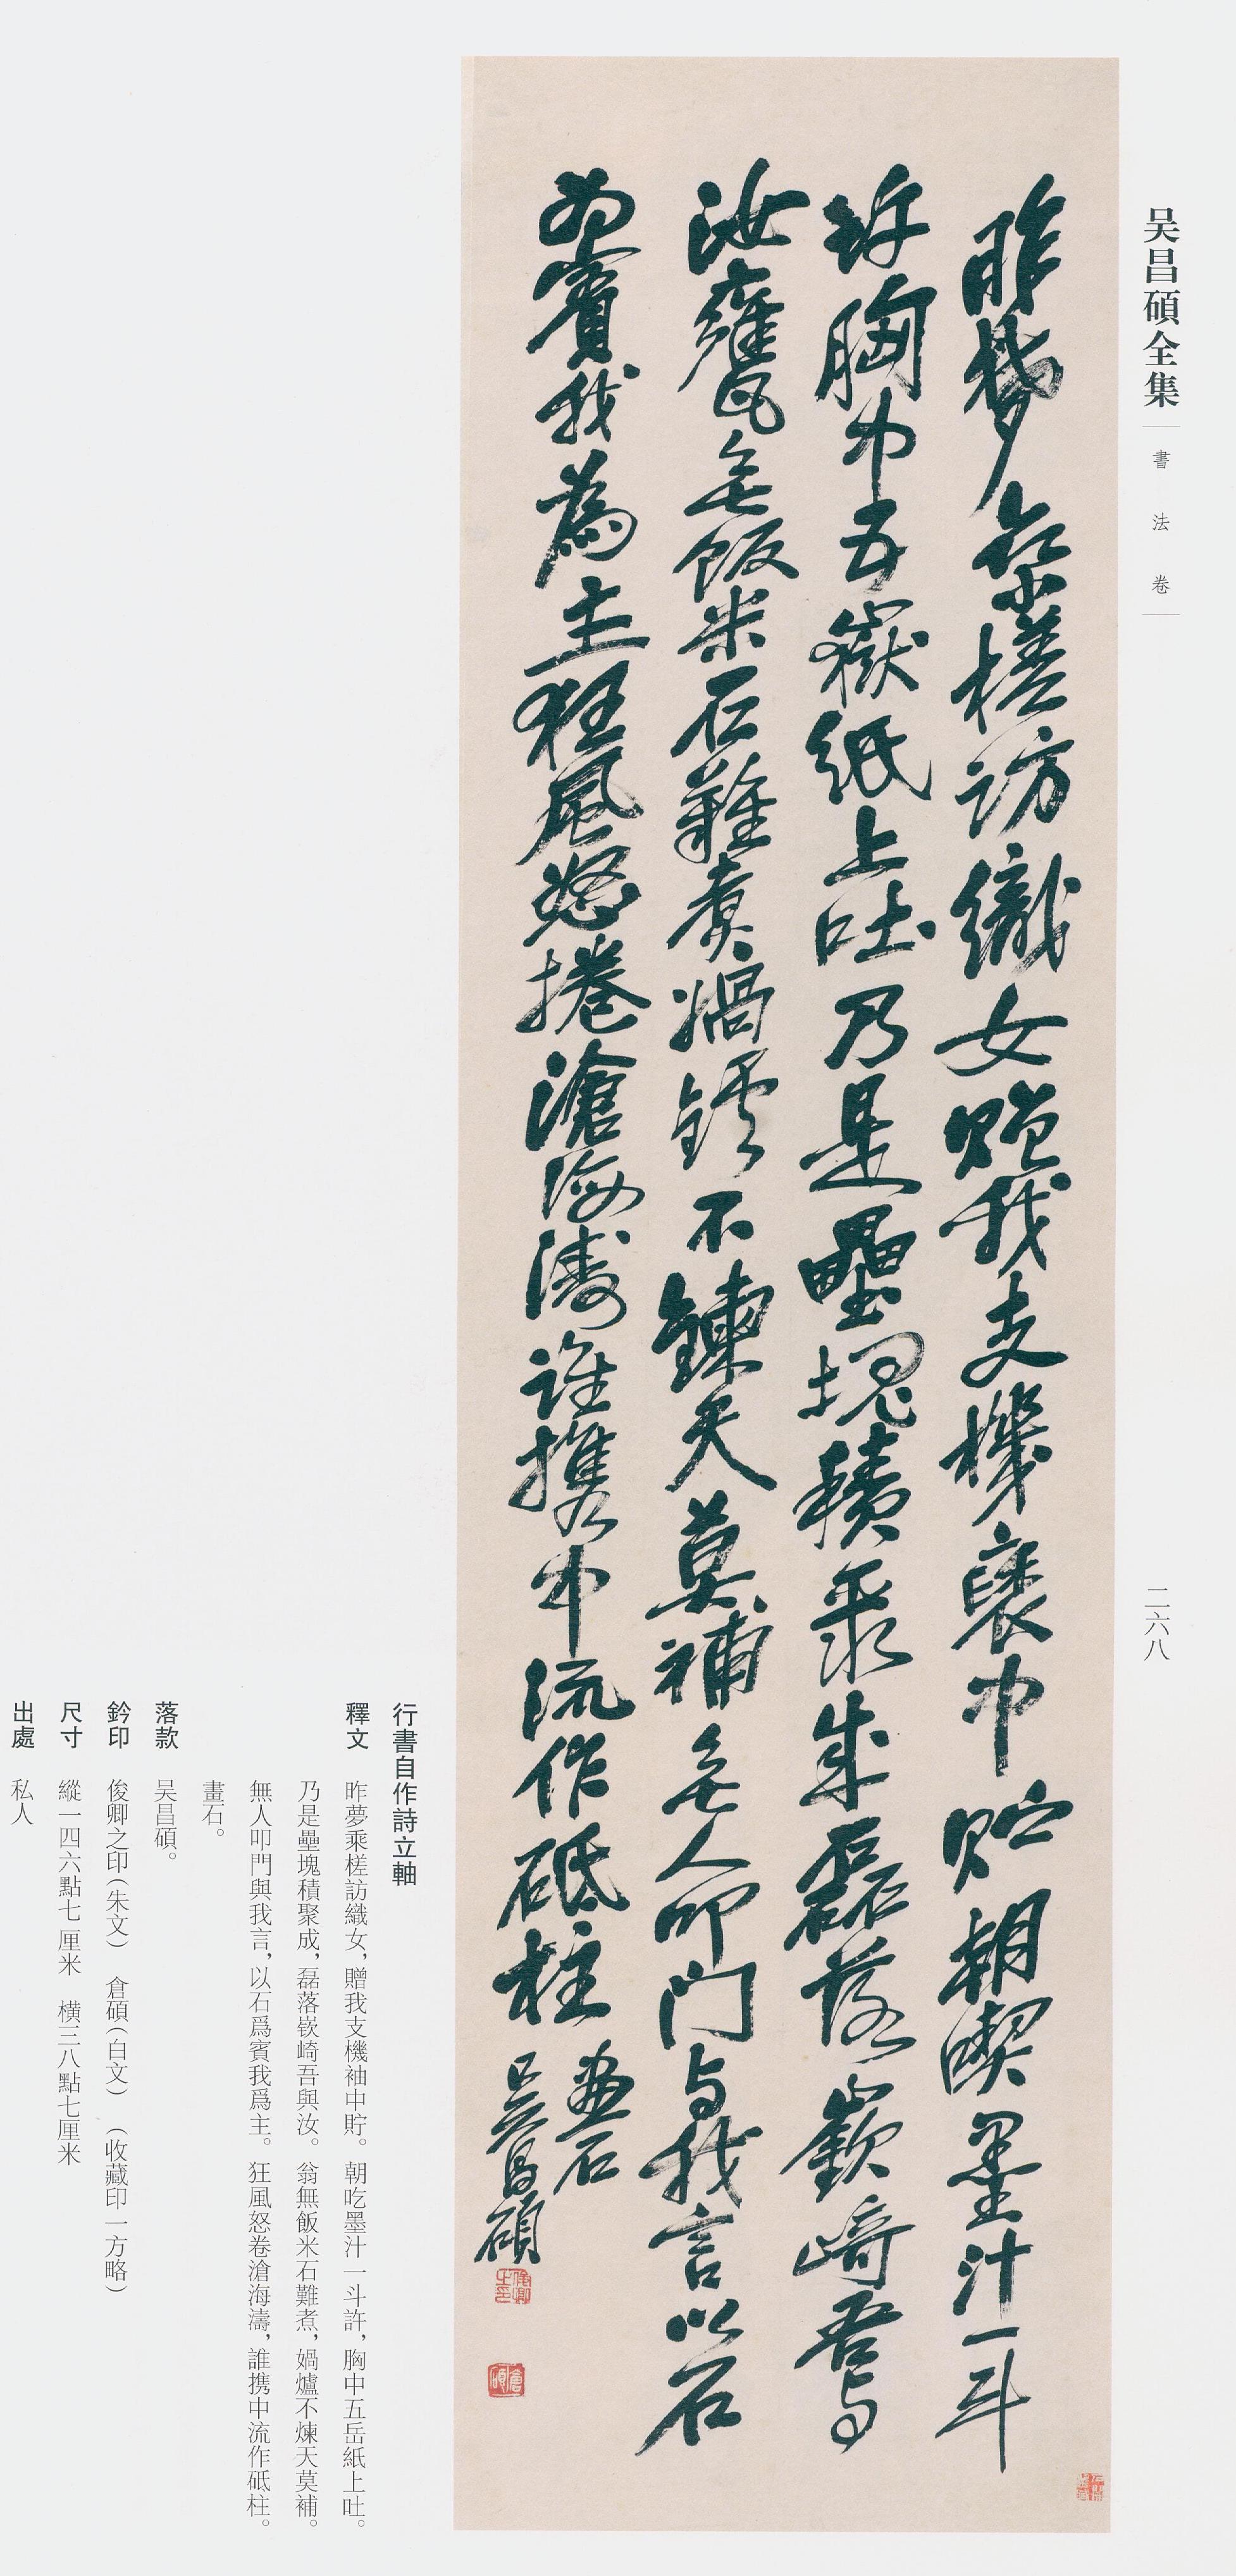 吴昌碩全集
書法卷
二六八
昨夢乘槎訪織女贈我支機褎中貯朝喫墨汁一斗
許胸中五嶽紙上吐乃是壘塊積聚成磊落嶔崎吾与
汝甕無飯米石難煮媧鑪不鍊天莫補無人叩门与我言以石
為賓我為主狂風怒捲滄海濤誰携中流作砥柱
畫石
吴昌碩
俊卿之印
倉碩
行書自作詩立軸
釋文 昨夢乘槎訪織女，贈我支機袖中貯。朝吃墨汁一斗許，胸中五岳紙上吐。
乃是壘塊積聚成，磊落嶔崎吾與汝。翁無飯米石難煮，媧爐不煉天莫補。
無人叩門與我言，以石爲賓我爲主。狂風怒卷滄海濤，誰携中流作砥柱。
畫石。
落款 吴昌碩。
鈐印 俊卿之印（朱文） 倉碩（白文） （收藏印一方略）
尺寸 縱一四六點七厘米 橫三八點七厘米
出處 私人